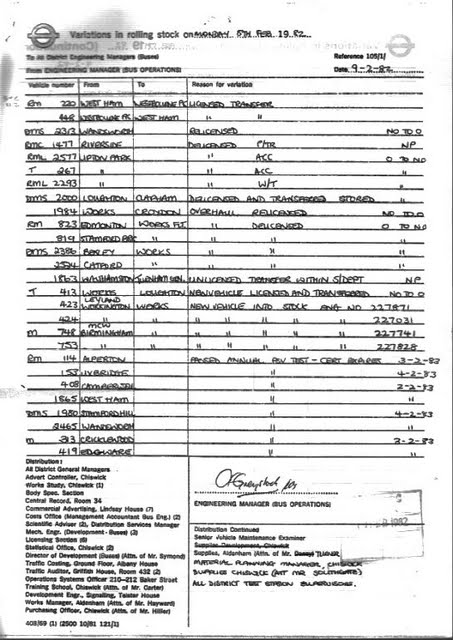 Variations in rolling stock on MONDAY 8TH FEB 1982
To All District Engineering Managers (Buses) Reference 105/1/
From ENGINEERING MANAGER (BUS OPERATIONS) Date 9-2-82
Vehicle number From To Reason for variation
RM 220 WEST HAM WESTBOURNE PK LICENSED TRANSFER
448 WESTBOURNE PK WEST HAM " "
DMS 2313 WANDSWORTH RELICENSED NO TO O
RMC 1477 RIVERSIDE DELICENSED P/TR NP
RML 2577 UPTON PARK " ACC O TO NO
T 267 " " ACC "
RML 2293 " " W/T "
DMS 2000 LOUGHTON CLAPHAM DELICENSED AND TRANSFERRED STORED "
1984 WORKS CROYDON OVERHAUL RELICENSED NO TO O
RM 823 EDMONTON WORKS " DELICENSED O TO NO
819 STAMFORD " " " "
DMS 2386 BEXLEY WORKS " " "
2524 CATFORD " " " "
1863 UNLICENSED TRANSFER WITHIN S/DEPT NP
T 413 WORKS LOUGHTON NEW VEHICLE LICENSED AND TRANSFERRED NO TO O
423 LEYLAND WORKINGTON WORKS NEW VEHICLE INTO STOCK ENG NO 227871
424 " " " " " " " 227031
M 748 MCW BIRMINGHAM " " " " " " 227741
753 " " " " " " " 227828
RM 114 ALPERTON PASSED ANNUAL PSV TEST - CERT EXPIRES 3-2-83
153 UXBRIDGE " 4-2-83
408 CAMBERWELL " 2-2-83
1865 WEST HAM " "
DMS 1980 STAMFORD HILL " 4-2-83
2465 WANDSWORTH " "
M 313 CRICKLEWOOD " 2-2-83
419 EDGWARE " "
Distribution:
All District General Managers
Advert Controller, Chiswick
Works Study, Chiswick (1)
Body Spec. Section
Central Record, Room 34
Commercial Advertising, Lindsey House (7)
Costs Office (Management Accountant Bus Eng.) (2)
Scientific Adviser (2), Distribution Services Manager
Mech. Engr. (Development - Buses) (3)
Licensing Section (6)
Statistical Office, Chiswick (2)
Director of Development (Buses) (Attn. of Mr. Symond)
Traffic Costing, Ground Floor, Albany House
Traffic Auditor, Griffith House, Room 432 (2)
Operations Systems Officer 210-212 Baker Street
Training School, Chiswick (Attn. of Mr. Carter)
Development Engr., Signalling, Telstar House
Works Manager, Aldenham (Attn. of Mr. Hayward)
Purchasing Officer, Chiswick (Attn. of Mr. Hill)
403/69 (1) (2500 10/81 121/1)
ENGINEERING MANAGER (BUS OPERATIONS)
1982
Distribution Continued
Senior Vehicle Maintenance Examiner
Supplies Development, Chiswick
Supplies, Aldenham (Attn. of Mr. TURNER)
MATERIAL PLANNING MANAGER, CHISWICK
SUPPLIES CHISWICK (ATT MR SOUTHGATE)
ALL DISTRICT TEST STATION SUPERVISORS.